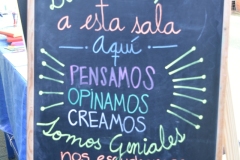 a esta sala
aquí
PENSAMOS
OPINAMOS
CREAMOS
Somos Geniales
nos